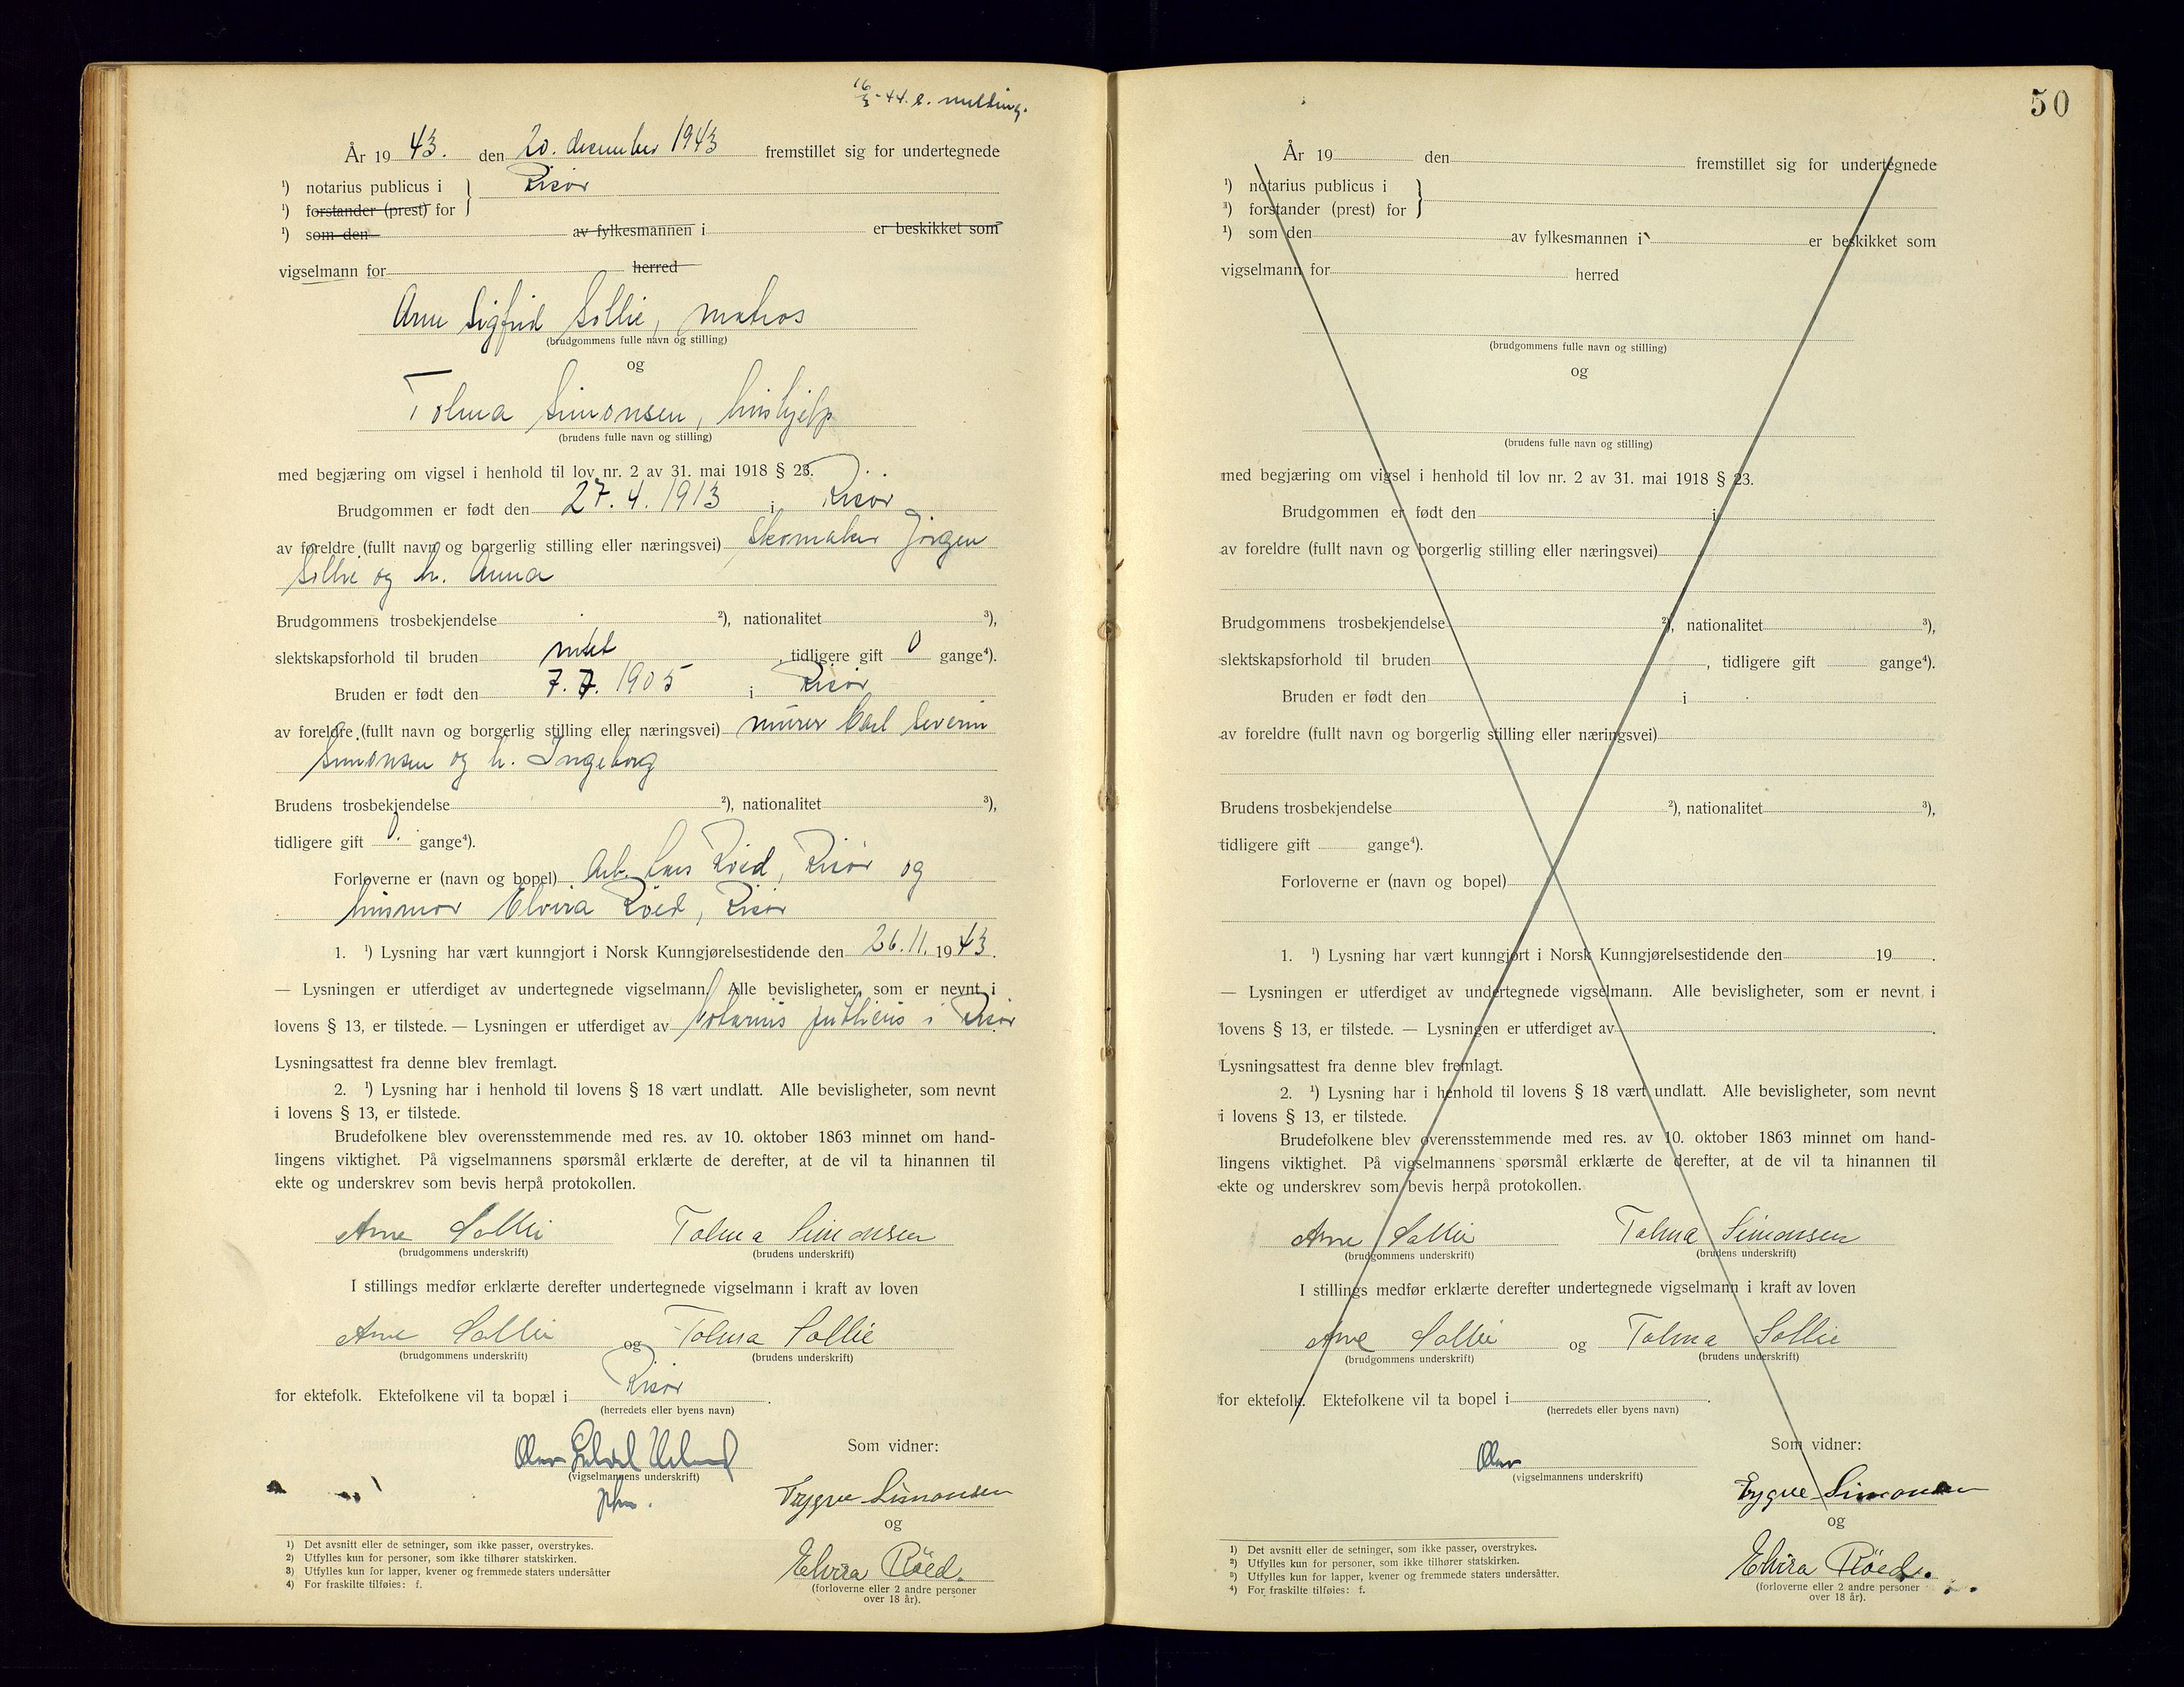 16/3-44. s. melding.
År 19 43. den 20. desember 1943 fremstillet sig for undertegnede
¹) notarius publicus i } Risør
¹) forstander (prest) for
¹) som den av fylkesmannen i er beskikket som
vigselmann for herred
Arne Sigfrid Sollie, matros
(brudgommens fulle navn og stilling)
og
Tolma Simonsen, hushjelp
(brudens fulle navn og stilling)
med begjæring om vigsel i henhold til lov nr. 2 av 31. mai 1918 § 23.
Brudgommen er født den 27.4.1913 i Risør
av foreldre (fullt navn og borgerlig stilling eller næringsvei) Skomaker Jørgen
Sollie og h. Anna
Brudgommens trosbekjendelse ²), nationalitet ³),
slektskapsforhold til bruden intet , tidligere gift 0 gange⁴).
Bruden er født den 7.7.1905 i Risør
av foreldre (fullt navn og borgerlig stilling eller næringsvei) murer Carl Severin
Simonsen og h. Ingeborg
Brudens trosbekjendelse ²), nationalitet ³),
tidligere gift 0 gange⁴).
Forloverne er (navn og bopel) Arb. Lars Røed, Risør og
husmor Elvira Røed, Risør
1. ¹) Lysning har vært kunngjort i Norsk Kunngjørelsestidende den 26.11. 19 43.
— Lysningen er utferdiget av undertegnede vigselmann. Alle bevisligheter, som er nevnt i
lovens § 13, er tilstede. — Lysningen er utferdiget av Notarius publicus i Risør.
Lysningsattest fra denne blev fremlagt.
2. ¹) Lysning har i henhold til lovens § 18 vært undlatt. Alle bevisligheter, som nevnt
i lovens § 13, er tilstede.
Brudefolkene blev overensstemmende med res. av 10. oktober 1863 minnet om hand-
lingens viktighet. På vigselmannens spørsmål erklærte de derefter, at de vil ta hinannen til
ekte og underskrev som bevis herpå protokollen.
Arne Sollie Tolma Simonsen
(brudgommens underskrift) (brudens underskrift)
I stillings medfør erklærte derefter undertegnede vigselmann i kraft av loven
Arne Sollie og Tolma Sollie
(brudgommens underskrift) (brudens underskrift)
for ektefolk. Ektefolkene vil ta bopæl i Risør.
(herredets eller byens navn)
Som vidner:
(vigselmannens underskrift)
Trygve Simonsen
og
Elvira Röed.
(forloverne eller 2 andre personer
over 18 år).
1) Det avsnitt eller de setninger, som ikke passer, overstrykes.
2) Utfylles kun for personer, som ikke tilhører statskirken.
3) Utfylles kun for lapper, kvener og fremmede staters undersåtter
4) For fraskilte tilføies: f.
50
År 19 den fremstillet sig for undertegnede
¹) notarius publicus i }
³) forstander (prest) for
¹) som den av fylkesmannen i er beskikket som
vigselmann for herred
(brudgommens fulle navn og stilling)
og
(brudens fulle navn og stilling)
med begjæring om vigsel i henhold til lov nr. 2 av 31. mai 1918 § 23.
Brudgommen er født den i
av foreldre (fullt navn og borgerlig stilling eller næringsvei)
Brudgommens trosbekjendelse ²), nationalitet ³),
slektskapsforhold til bruden , tidligere gift gange⁴).
Bruden er født den i
av foreldre (fullt navn og borgerlig stilling eller næringsvei)
Brudens trosbekjendelse ²), nationalitet ³),
tidligere gift gange⁴).
Forloverne er (navn og bopel)
1. ¹) Lysning har vært kunngjort i Norsk Kunngjørelsestidende den 19 .
— Lysningen er utferdiget av undertegnede vigselmann. Alle bevisligheter, som er nevnt i
lovens § 13, er tilstede. — Lysningen er utferdiget av .
Lysningsattest fra denne blev fremlagt.
2. ¹) Lysning har i henhold til lovens § 18 vært undlatt. Alle bevisligheter, som nevnt
i lovens § 13, er tilstede.
Brudefolkene blev overensstemmende med res. av 10. oktober 1863 minnet om hand-
lingens viktighet. På vigselmannens spørsmål erklærte de derefter, at de vil ta hinannen til
ekte og underskrev som bevis herpå protokollen.
Arne Sollie Tolma Simonsen
(brudgommens underskrift) (brudens underskrift)
I stillings medfør erklærte derefter undertegnede vigselmann i kraft av loven
Arne Sollie og Tolma Sollie
(brudgommens underskrift) (brudens underskrift)
for ektefolk. Ektefolkene vil ta bopel i .
(herredets eller byens navn)
Som vidner:
Olav
(vigselmannens underskrift)
Trygve Simonsen
og
Elvira Röed.
(forloverne eller 2 andre personer
over 18 år).
1) Det avsnitt eller de setninger, som ikke passer, overstrykes.
2) Utfylles kun for personer, som ikke tilhører statskirken.
3) Utfylles kun for lapper, kvener og fremmede staters undersåtter.
4) For fraskilte tilføies: f.